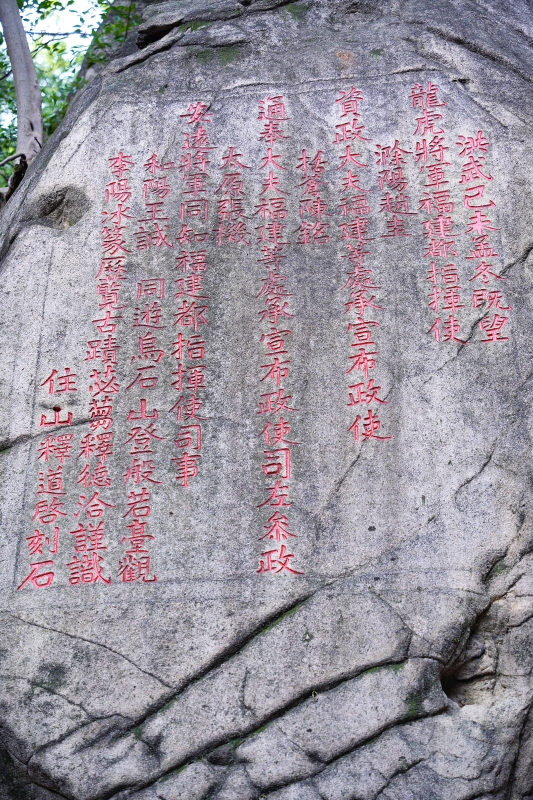 洪武己未孟冬既望
龍虎將軍福建都指揮使
滁陽趙
資政大夫福建等處承宣布政使
括蒼陳銘
通奉大夫福建等處承宣布政使司左叅政
太原張機
安遠將軍同知福建都指揮使司事
和陽王誠 同遊烏石山登般若臺觀
李陽冰篆歷覽古蹟苾蒭釋德洽謹識
住山釋道啓刻石